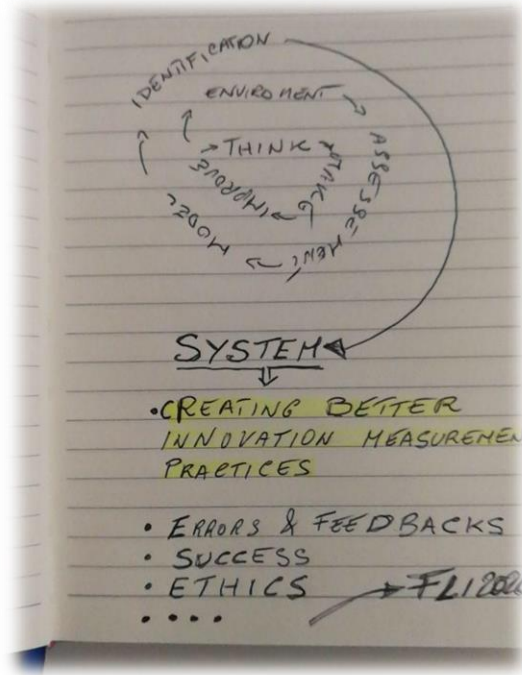 IDENTIFICATION
ENVIROMENT
ASSESSEMENT
THINK
MAKE
IMPROVE
MODEL
SYSTEM
• CREATING BETTER
INNOVATION MEASUREMEN
PRACTICES
• ERRORS & FEEDBACKS
• SUCCESS
• ETHICS
• • • •